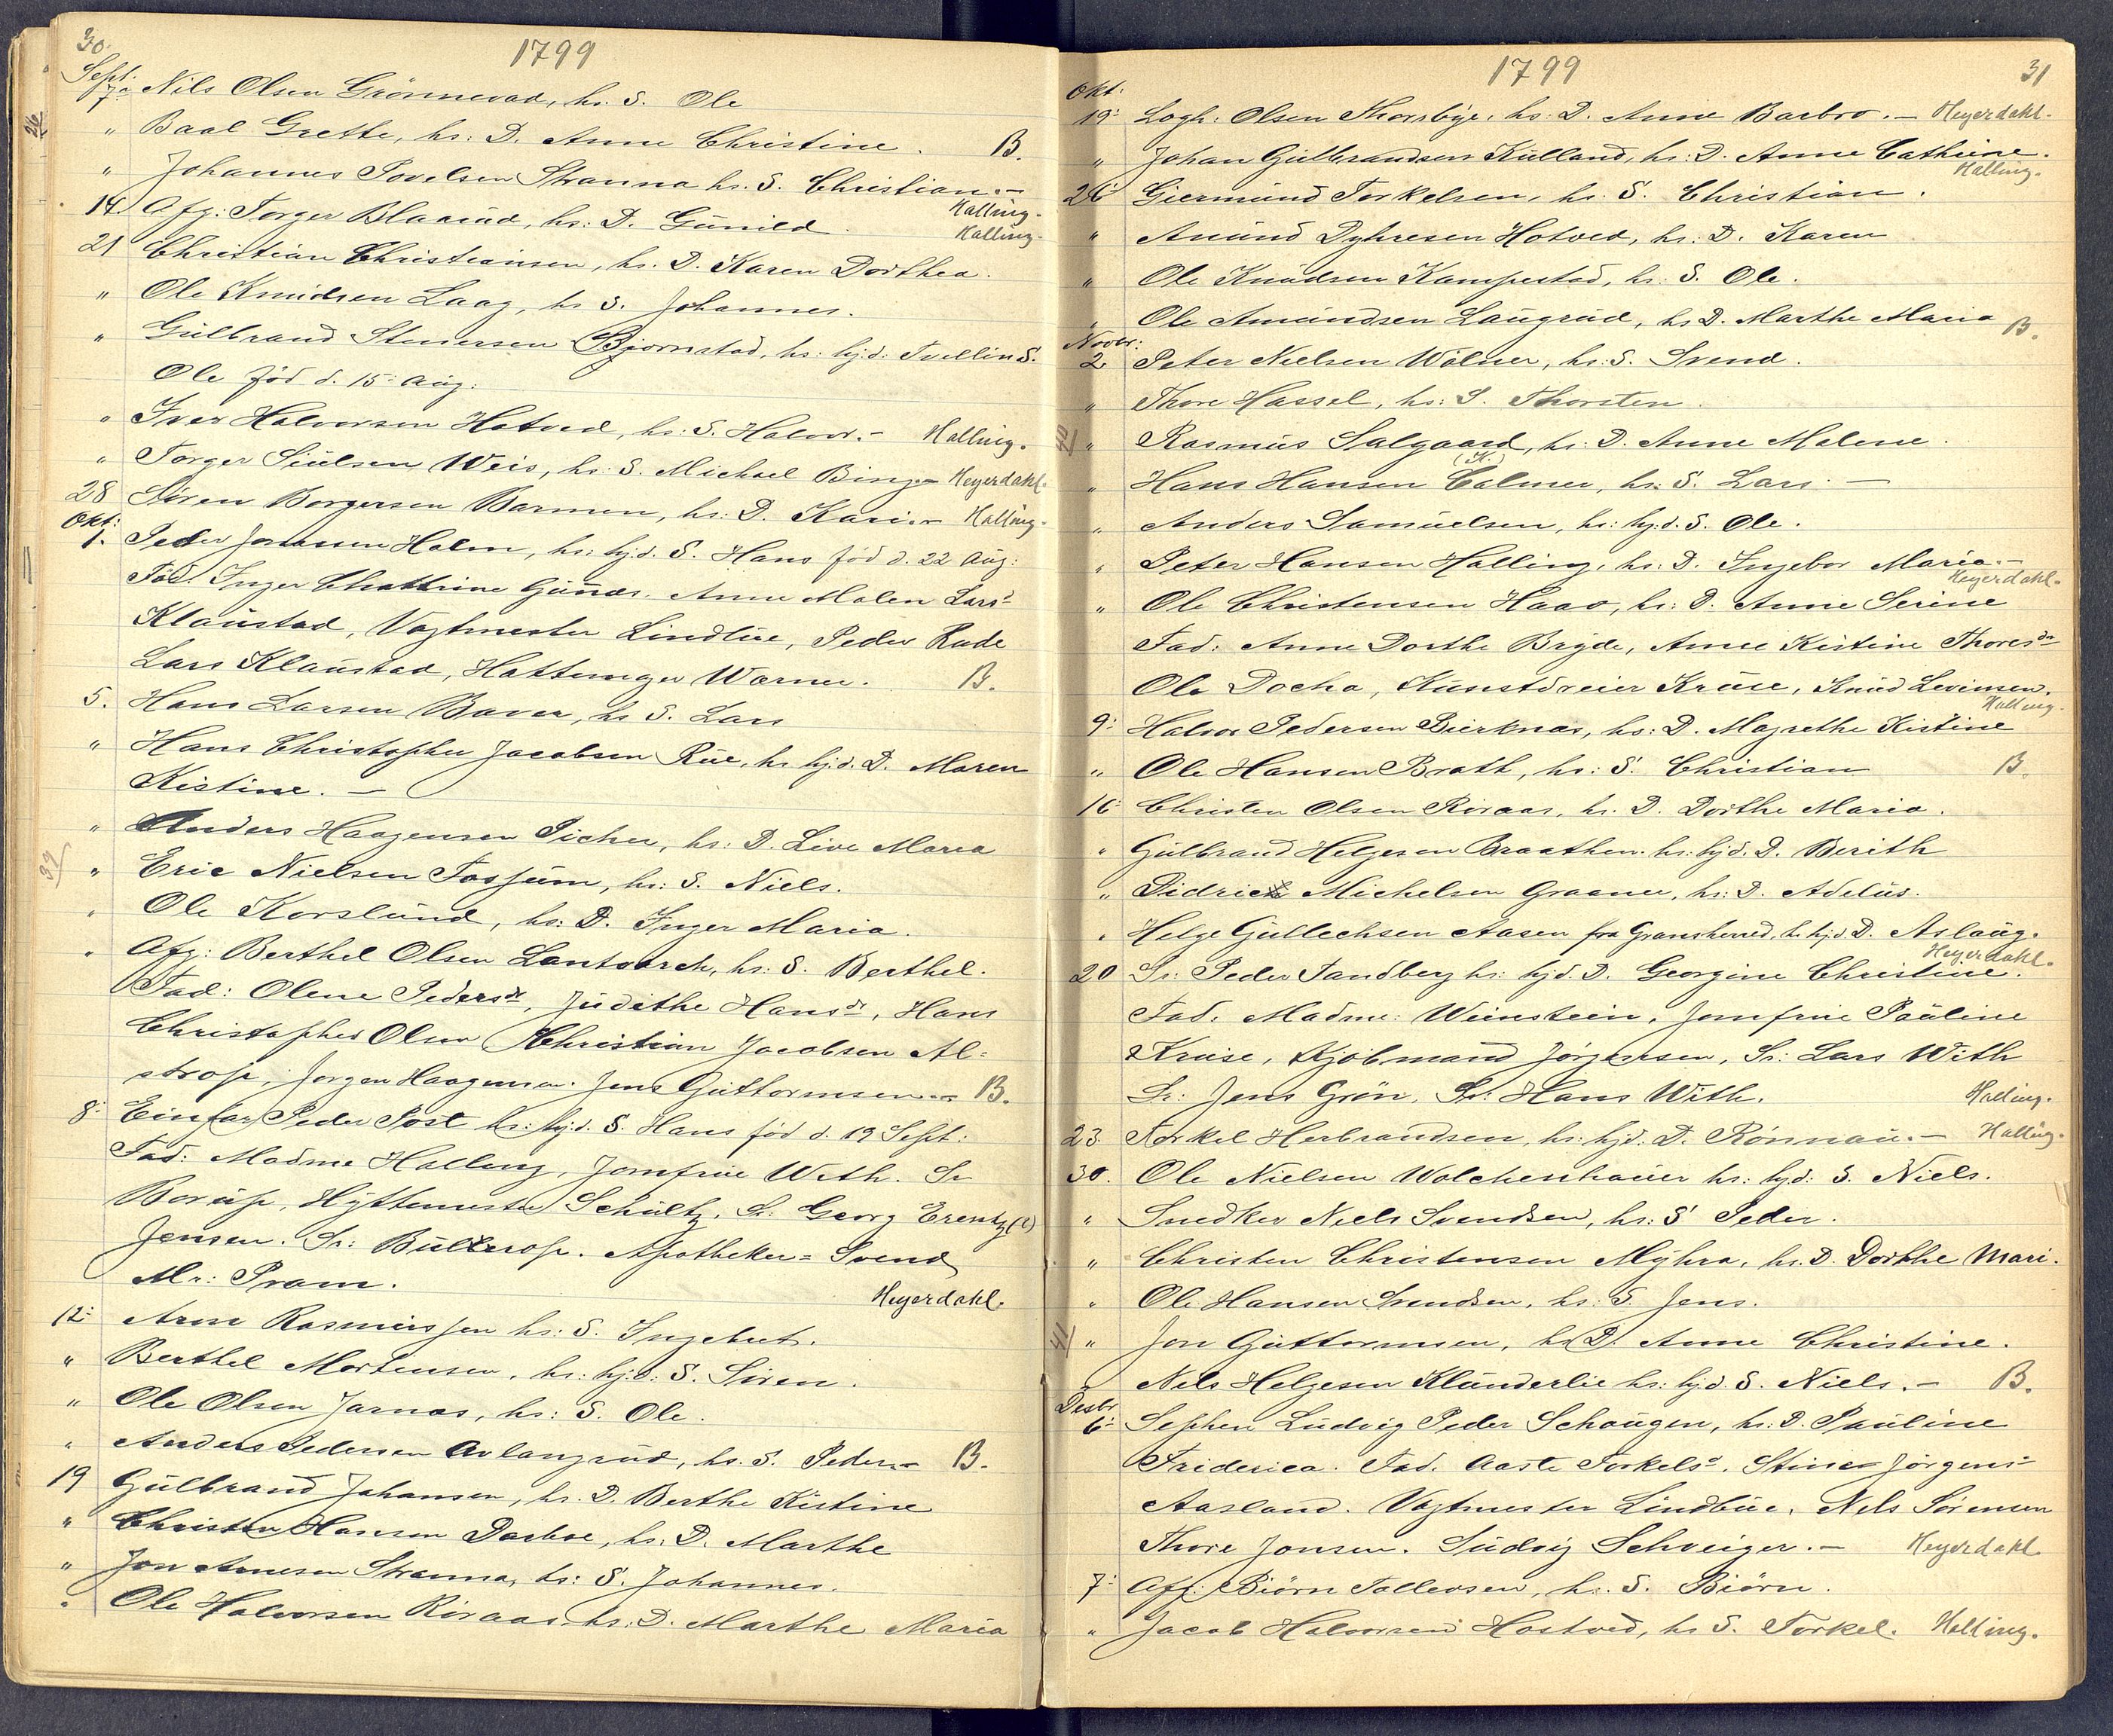 30.
1799
Sept:
7: Nils Olsen Grönnevad, hs: S. Ole
26
" Baal Grette, hs: D. Anne Christine. B.
" Johannes Povelsen Stranna hs. S. Christian.– Halling.
14. Afg: Torger Blaarud, hs: D. Gunild. Halling.
21 Christian Christiansen, hs. D. Karen Dorthea.
" Ole Knudsen Laag, hs S. Johannes.
" Gulbrand Stenersen Bjornstad, hs: hj:d: Tvilling S.
Ole fød d. 15: Aug:
" Iver Halvorsen Hotved, hs: S. Halvor.– Halling.
" Torger Siulsen Weis, hs: S. Michael Bing.– Heyerdahl.
28 Sören Borgersen Barmen, hs: D. Kari.– Halling.
Okt:
1. Peder Jonassen Holm, hs: hj:d. S. Hans fød d. 22 Aug:
Fad: Inger Chattrine Gunnes. Anne Malen Lars=
Klaustad, Vagtmester Lindbue, Peder Rude
Lars Klaustad, Hattemager Warner. B.
5. Hans Larsen Baver, hs S. Lars
" Hans Christopher Jacobsen Rue, hs hj:d. D. Maren
Kistine. –
" Anders Haagensen Picher, hs: D. Live Maria
39
" Eric Nielsen Fossum, hs: S. Niels.
" Ole Korslund, hs: D. Inger Maria.
" Afg: Berthel Olsen Lantvarch, hs: S. Berthel.
Fad: Olene Pedersdr, Judithe Hansdr, Hans
Christopher Olsen Christian Jacobsen Al=
strop, Jorgen Haagensen. Jens Guttormsen.– B.
8: Einfar Peder Post hs: hj:d. S. Hans fød d. 19 Sept:
Fad: Madme Halling, Jomfrue With. Sr
Borup, Hyttemester Schultz. Sr: Georg Erentz (?)
Jensen. Sr: Bullerop. Apotheker = Svend
Mr: Pram. Heyerdahl.
12: Arne Rasmussen hs: S. Ingebret.
" Berthel Mortensen, hs: hj:d: S. Sören.
" Ole Olsen Jarnas, hs: S. Ole.
" Anders Pedersen Avlangrud, hs. S. Peder.– B.
19 Gulbrand Johansen, hs. D. Berthe Kistine
" Christen Hansen Darboe, hs. D. Marthe
" Jon Arnesen Stranna, hs: S. Johannes.
" Ole Halvorsen Röraas, hs: D. Marthe Maria
1799
31
Okt:
19: Logh: Olsen Thorsbye. hs: D. Anne Barbro.– Heyerdahl.
" Johan Gulbrandsen Kulland, hs: D. Anne Cathrine. Halling.
26 Giermund Torkelsen, hs. S. Christian.
" Amund Dyhresen Hotved, hs: D. Karen
" Ole Knudsen Kampestad, hs: S. Ole.
Ole Amundsen Laugrud, hs D. Marthe Maria B.
Novbr:
2 Peter Nielsen Wölner, hs: S. Svend.
" Thore Hassel, hs: S. Thorsten.
40
" Rasmus Salgaard, hs: D. Anne Malene.
(K.)
" Hans Hansen Colmer, hs: S. Lars. –
" Anders Samuelsen, hs: hj:d. S. Ole.
" Peter Hansen Halling, hs: D. Ingebor Maria.– Heyerdahl.
" Ole Christensen Haao, hs: D. Anne Serine
Fad: Anne Dorthe Bryde, Anne Kistine Thoresdr
Ole Docha, Kunstdreier Kruse, Knud Levinsen. Halling.
9: Halvor Pedersen Bierknas, hs: D. Magrethe Kistine
" Ole Hansen Brath, hs: S. Christian B.
16: Christen Olsen Roraas, hs. D. Dorthe Maria.
" Gulbrand Helgesen Braathen. hs: hj:d. D. Berith
" Didrich Michelsen Graaner, hs: D. Adelus.
" Helge Gullechsen Aasen fra Gransherred, hs hj:d D. Aslaug. Heyerdahl.
20 Sr: Peder Sandberg hs: hj:d. D. Georgine Christine.
Fad. Madme: Weinstein, Jomfrue Pauline
Kruse, Kjöbmand Jörgensen, Sr: Lars With
Sr: Jens Grön, Sr: Hans With. Halling.
23. Torkel Herbrandsen, hs: hj:d. D. Rönnau.– Halling.
30. Ole Nielsen Wolchenhauer hs: hj:d: S. Niels.
" Snedker Niels Svendsen, hs: S Peder.
" Christen Christensen Myhra, hs. D. Dorthe Mari.
" Ole Hansen Svendsen, hs: S. Jens.
41
" Jon Guttormsen, hs D. Anne Christine.
Nels Helgesen Klunderlie hs: hj:d. S. Niels.– B.
Desbr
6: Sephen Ludvig Peder Schougen, hs: D. Pauline
Friderica. Fad. Aaste Torkels=. Stine Jörgens=
Aasland. Vagtmester Lindbue. Nels Sörensen
Thore Jonsen. Ludvig Schveiger.– Heyerdahl
7: Afg: Biörn Tallevsen, hs. S. Biörn.
" Jacob Halvorsen Hostved, hs S. Torkel. Halling.